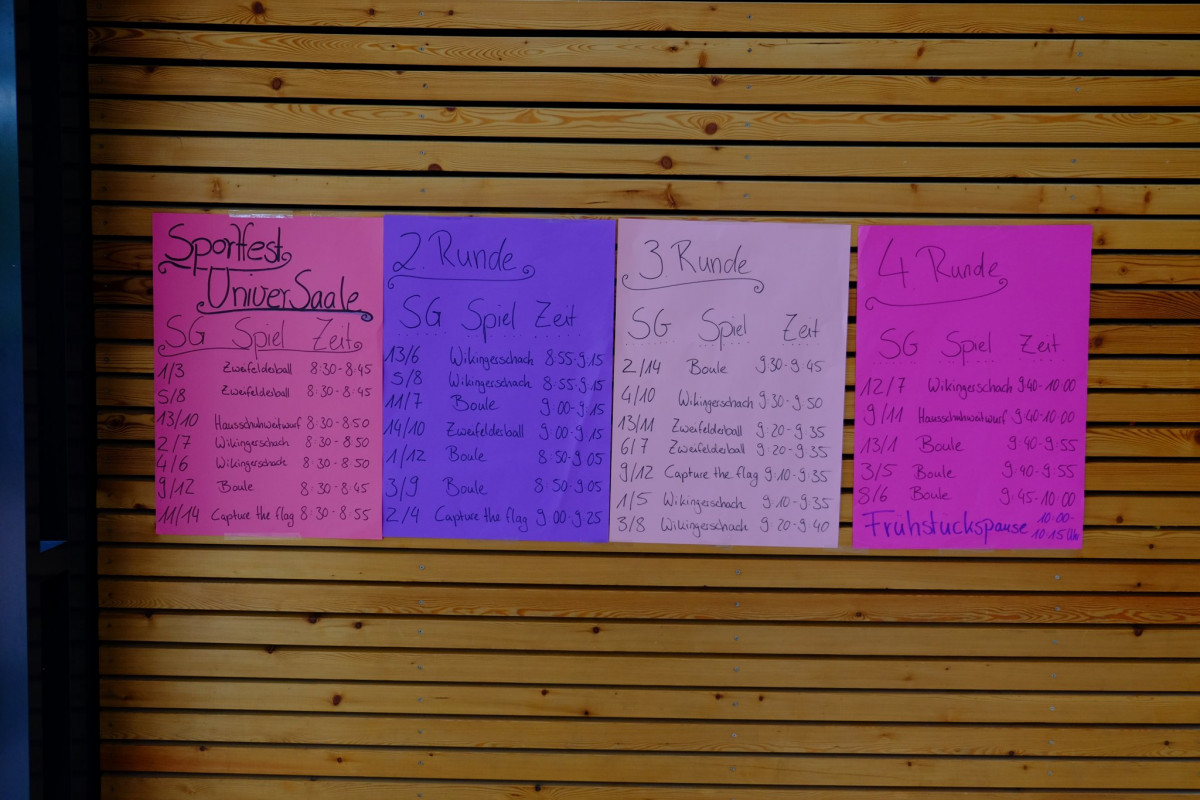 Sportfest
UniverSaale
SG Spiel Zeit
1/3 Zweifelderball 8:30-8:45
5/8 Zweifelderball 8:30-8:45
13/10 Hausschuhweitwurf 8:30-8:50
2/7 Wikingerschach 8:30-8:50
4/6 Wikingerschach 8:30-8:50
9/12 Boule 8:30-8:45
11/14 Capture the flag 8:30-8:55
2. Runde
SG Spiel Zeit
13/6 Wikingerschach 8:55-9:15
5/8 Wikingerschach 8:55-9:15
11/7 Boule 9:00-9:15
14/10 Zweifelderball 9:00-9:15
1/12 Boule 8:50-9:05
3/9 Boule 8:50-9:05
2/4 Capture the flag 9:00-9:25
3. Runde
SG Spiel Zeit
2/14 Boule 9:30-9:45
4/10 Wikingerschach 9:30-9:50
13/11 Zweifelderball 9:20-9:35
6/7 Zweifelderball 9:20-9:35
9/12 Capture the flag 9:10-9:35
1/5 Wikingerschach 9:10-9:35
3/8 Wikingerschach 9:20-9:40
4 Runde
SG Spiel Zeit
12/7 Wikingerschach 9:40-10:00
9/11 Hausschuhweitwurf 9:40-10:00
13/1 Boule 9:40-9:55
3/5 Boule 9:40-9:55
8/6 Boule 9:45-10:00
Frühstückspause 10:00-
10:15 Uhr